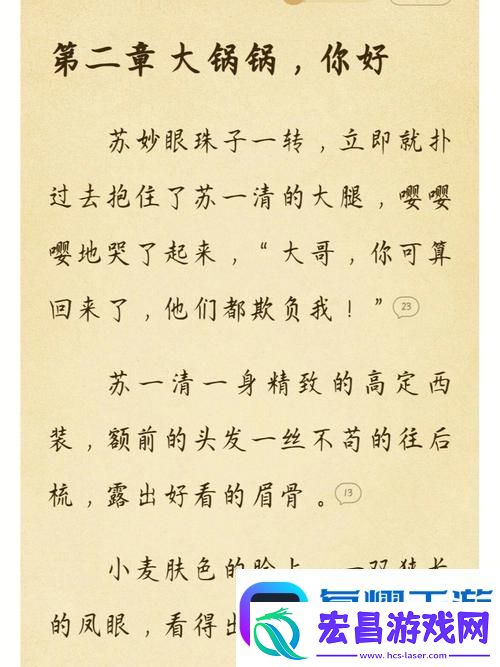 第二章 大锅锅，你好
苏妙眼珠子一转，立即就扑
过去抱住了苏一清的大腿，嘤嘤
嘤地哭了起来，“大哥，你可算
回来了，他们都欺负我！”
23
苏一清一身精致的高定西
装，额前的头发一丝不苟的往后
梳，露出好看的眉骨。
13
小麦肤色的脸上，一双狭长
的凤眼，看得出
宏昌游戏网
www.hcs-laser.com